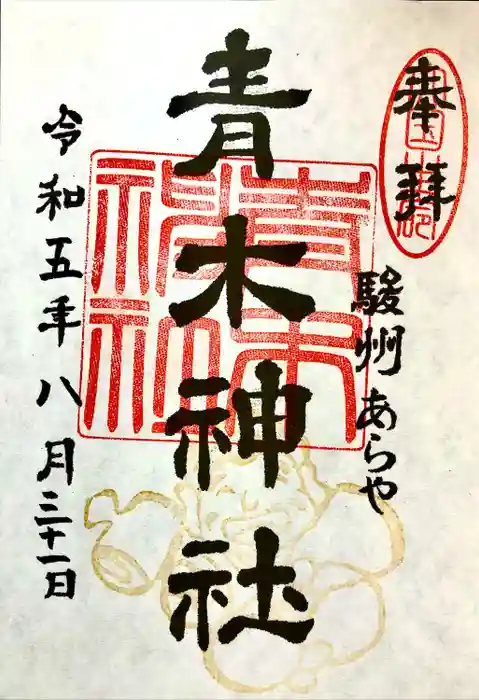 奉拝
駿州 あらや
青木神社
令和五年八月三十一日